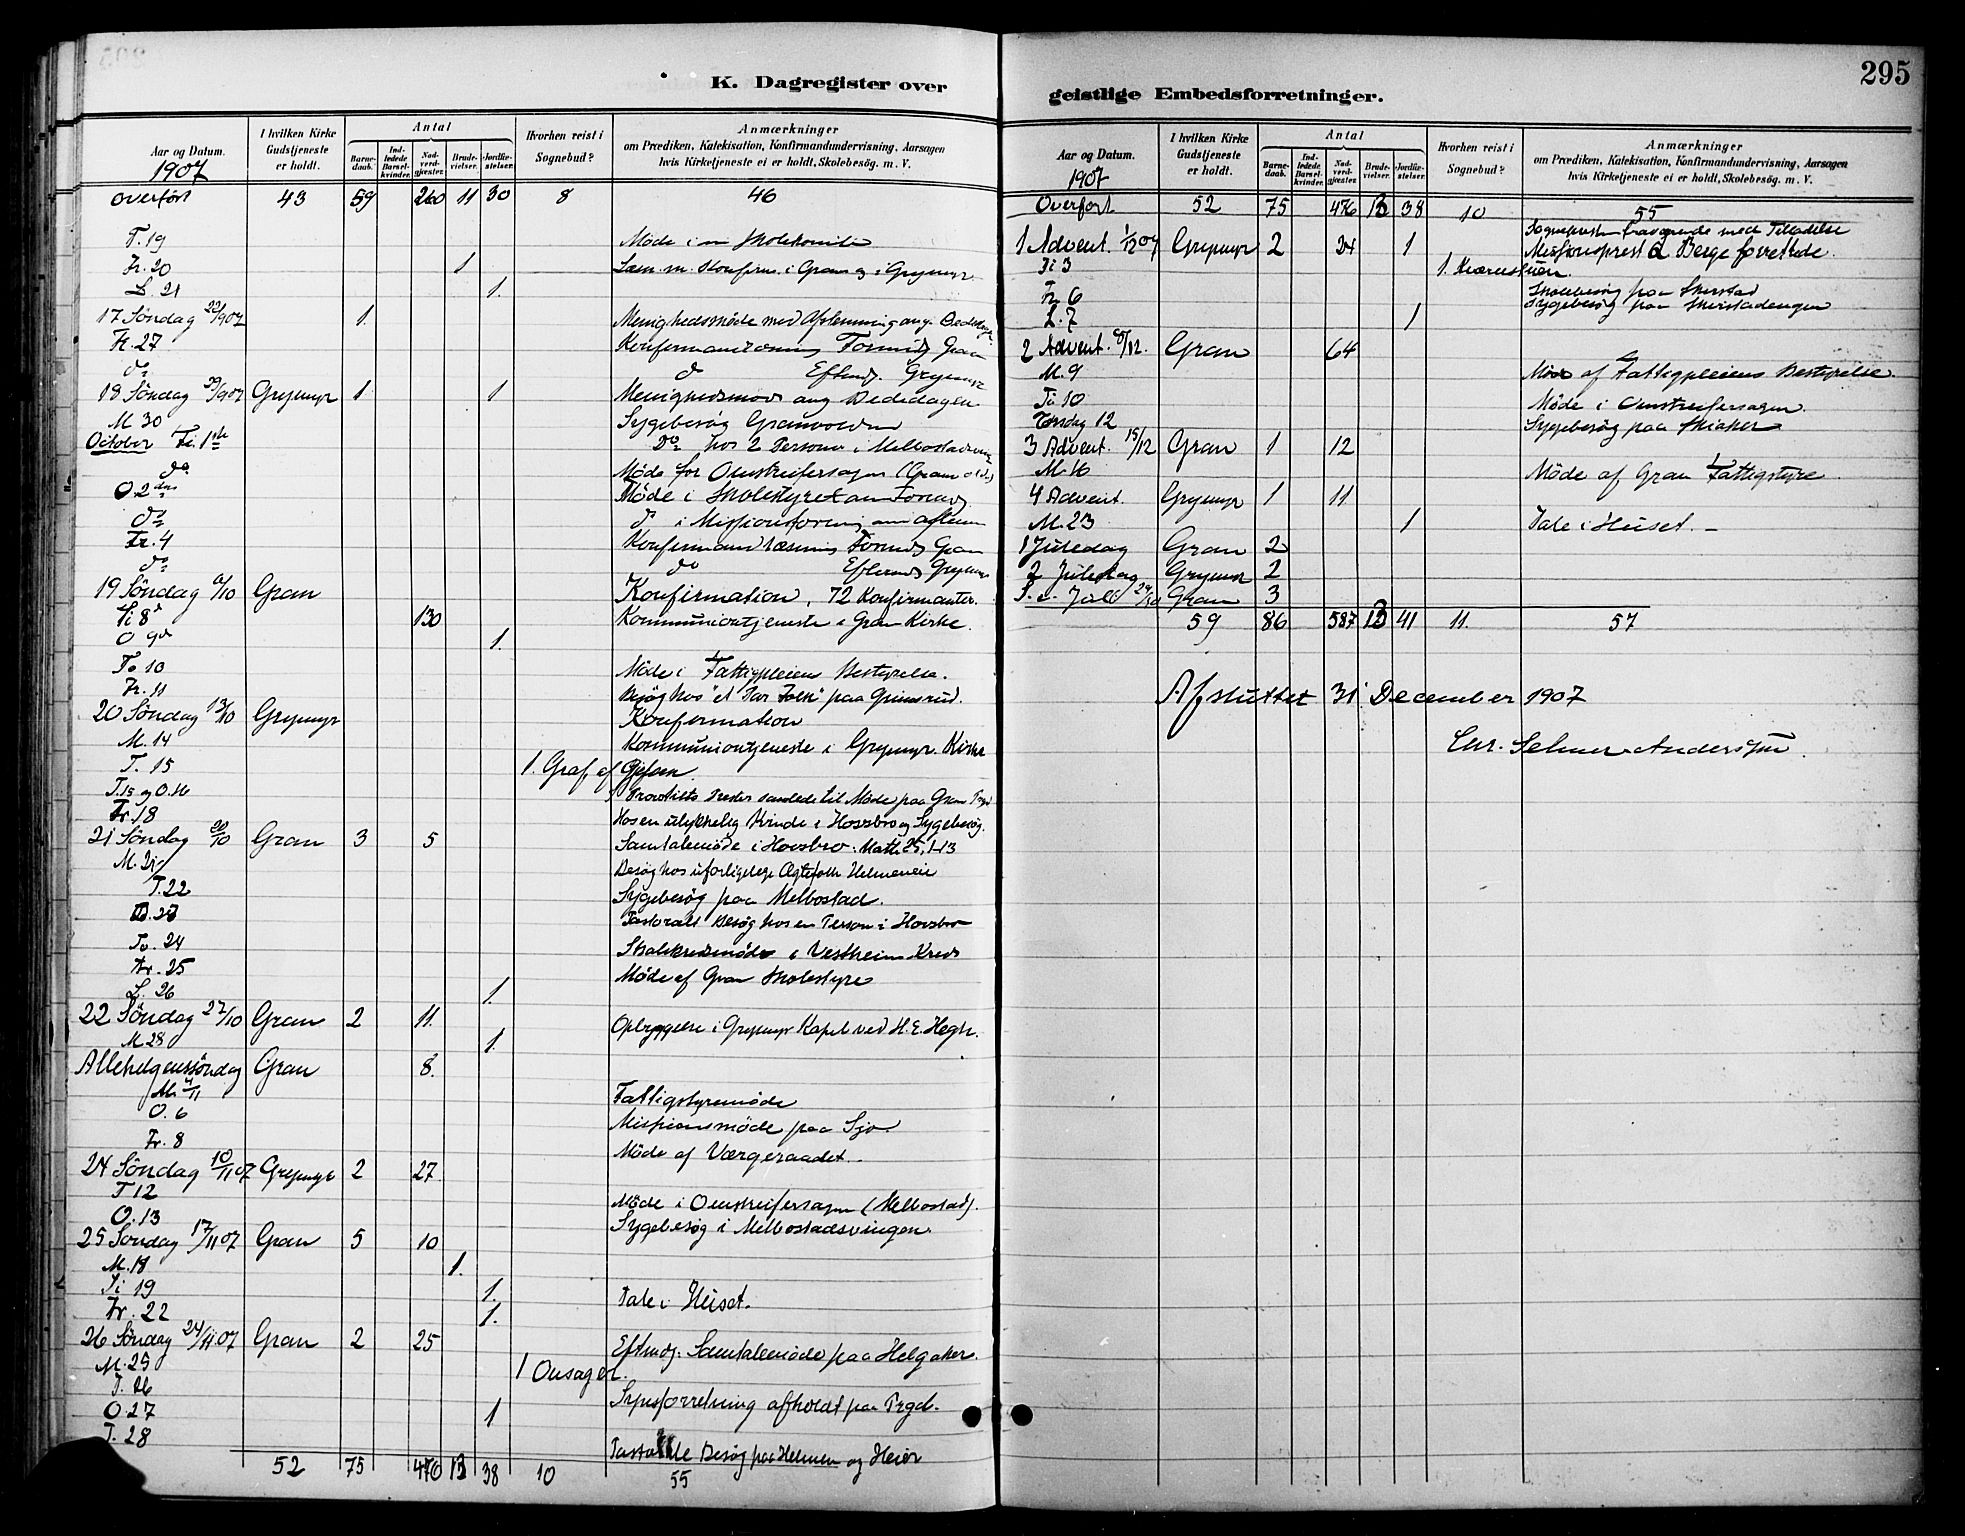 295
K. Dagregister over
geistlige Embedsforretninger.
Aar og Datum. 1907
I hvilken Kirke Gudstjeneste er holdt.
Antal
Barnedaab.
Indledede Barselkvinder.
Nadverdgjester.
Brudevielser.
Jordfæstelser.
Hvorhen reist i Sognebud?
Anmærkninger
om Prædiken, Katekisation, Konfirmandundervisning, Aarsagen
hvis Kirketjeneste ei er holdt, Skolebesøg. m. V.
Overført 43 59 260 11 30 8 46
T. 19 Møde i
Fr. 20 1 Læsn. m. Konfirm. i Gran og i Grymyr
L. 21 1.
17 Søndag 22/9 07 1. Menighedsmøde med Afstemning ang. Bededagen
Fr. 27 Konfirmandlæsning Formidg Gran
do do Eftmdg. Grymyr
18 Søndag 29/9 07 Grymyr 1 1 Menighedsmøde ang Bededagen
M 30 Sygebesøg Granvolden
October Ti. 1ste Do hos 2 Personer i Melbostadvingen
do Møde for Omstreifersagen (Gran
O 2den Møde i Skolestyret om Formd
do do i Missionsforening om aftenen
Fr. 4 Konfirmandlæsning Formd Gran
do do Eftermd Grymyr
19 Søndag 6/10 Gran Konfirmation, 72 Konfirmanter.
Ti 8de 130 Kommuniontjeneste i Gran Kirke.
O 9de 1.
To 10 Møde i Fattigpleiens Bestyrelse.
Fr. 11 Besøg hos "et Par Folk" paa Grinsrud.
20 Søndag 13/10 Grymyr Konfirmation
M. 14 Kommuniontjeneste i Grymyr. Kirke
T. 15 1. Graf af Gjefsen.
T. 15 og O. 16 Provstiets Prester samlede til Møde paa Gran Prgd
Fr. 18 Hos en ulykkelig Kvinde i Hovsbro og Sygebesøg.
21 Søndag 20/10 Gran 3 5 Samtalemøde i Hovsbro. Math. 25, 1-13
M. 21 Besøg hos uforligelige Ægtefolk Helmeneie
T. 22 Sygebesøg paa Melbostad.
O. 23 Pastoralt Besøg hos en Person i Hovsbro
To. 24 Skolekredsmøde i Vestheim Kreds
Fr. 25 Møde af Gran Skolestyre
L. 26 1.
22 Søndag 27/10 Gran 2 11. Opbyggelse i Grymyr Kapel ved H. E. Hegh.
M 28 1.
Allehelgenssøndag Gran 8.
M. 4/11 Fattigstyremøde
O. 6 Missionsmøde paa Sjo.
Fr. 8 Møde af Værgeraadet.
24 Søndag 10/11 07 Grymyr 2 27.
T 12 Møde i Omstreifersagen (Melbostad).
O. 13 Sygebesøg i Melbostadsvingen.
25 Søndag 17/11 07 Gran 5 10
M. 18 1.
Ti 19 1. Tale i Huset.
Fr. 22 1.
26 Søndag 24/11 07 Gran 2 25 Eftmdg. Samtalemøde paa Helgaker.
M. 25 1 Onsager.
T. 26 Synsforretning afholdt paa Prgd.
O. 27 1
T. 28 Pastorale Besøg paa Helmen og Heier
52 75 476 13 38 10 55
Aar og Datum. 1907
I hvilken Kirke Gudstjeneste er holdt.
Antal
Barnedaab.
Indledede Barselkvinder.
Nadverdgjester.
Brudevielser.
Jordfæstelser.
Hvorhen reist i Sognebud?
Anmærkninger
om Prædiken, Katekisation, Konfirmandundervisning, Aarsagen
hvis Kirketjeneste ei er holdt, Skolebesøg. m. V.
Overført 52 75 476 13 38 10 55
Sognepresten fraværende med Tilladelse
1 Advent. 1/12 07 Grymyr 2 24 1 Missionsprest Berge forrettede.
Ti 3 1.
Fr. 6 Skolebesøg paa Skirstad
L. 7 1 Sygebesøg paa Skirstadengen
2 Advent. 8/12. Gran 64
M. 9 Møde af Fattigpleiens Bestyrelse.
Ti 10 Møde i Omstreifersagen.
Torsdag 12 Sygebesøg paa Skiaker
3 Advent. 15/12 Gran 1 12
M. 16 Møde af Gran Fattigstyre.
4 Advent. Grymyr 1 11
M. 23 1 Tale i Huset. –
1 Juledag Gran 2
2 Juledag Grymyr 2
S. e. Jul 29/12 Gran 3
59 86 587 13 41 11. 57
Afsluttet 31 December 1907
Chr. Selmer Anderssen.